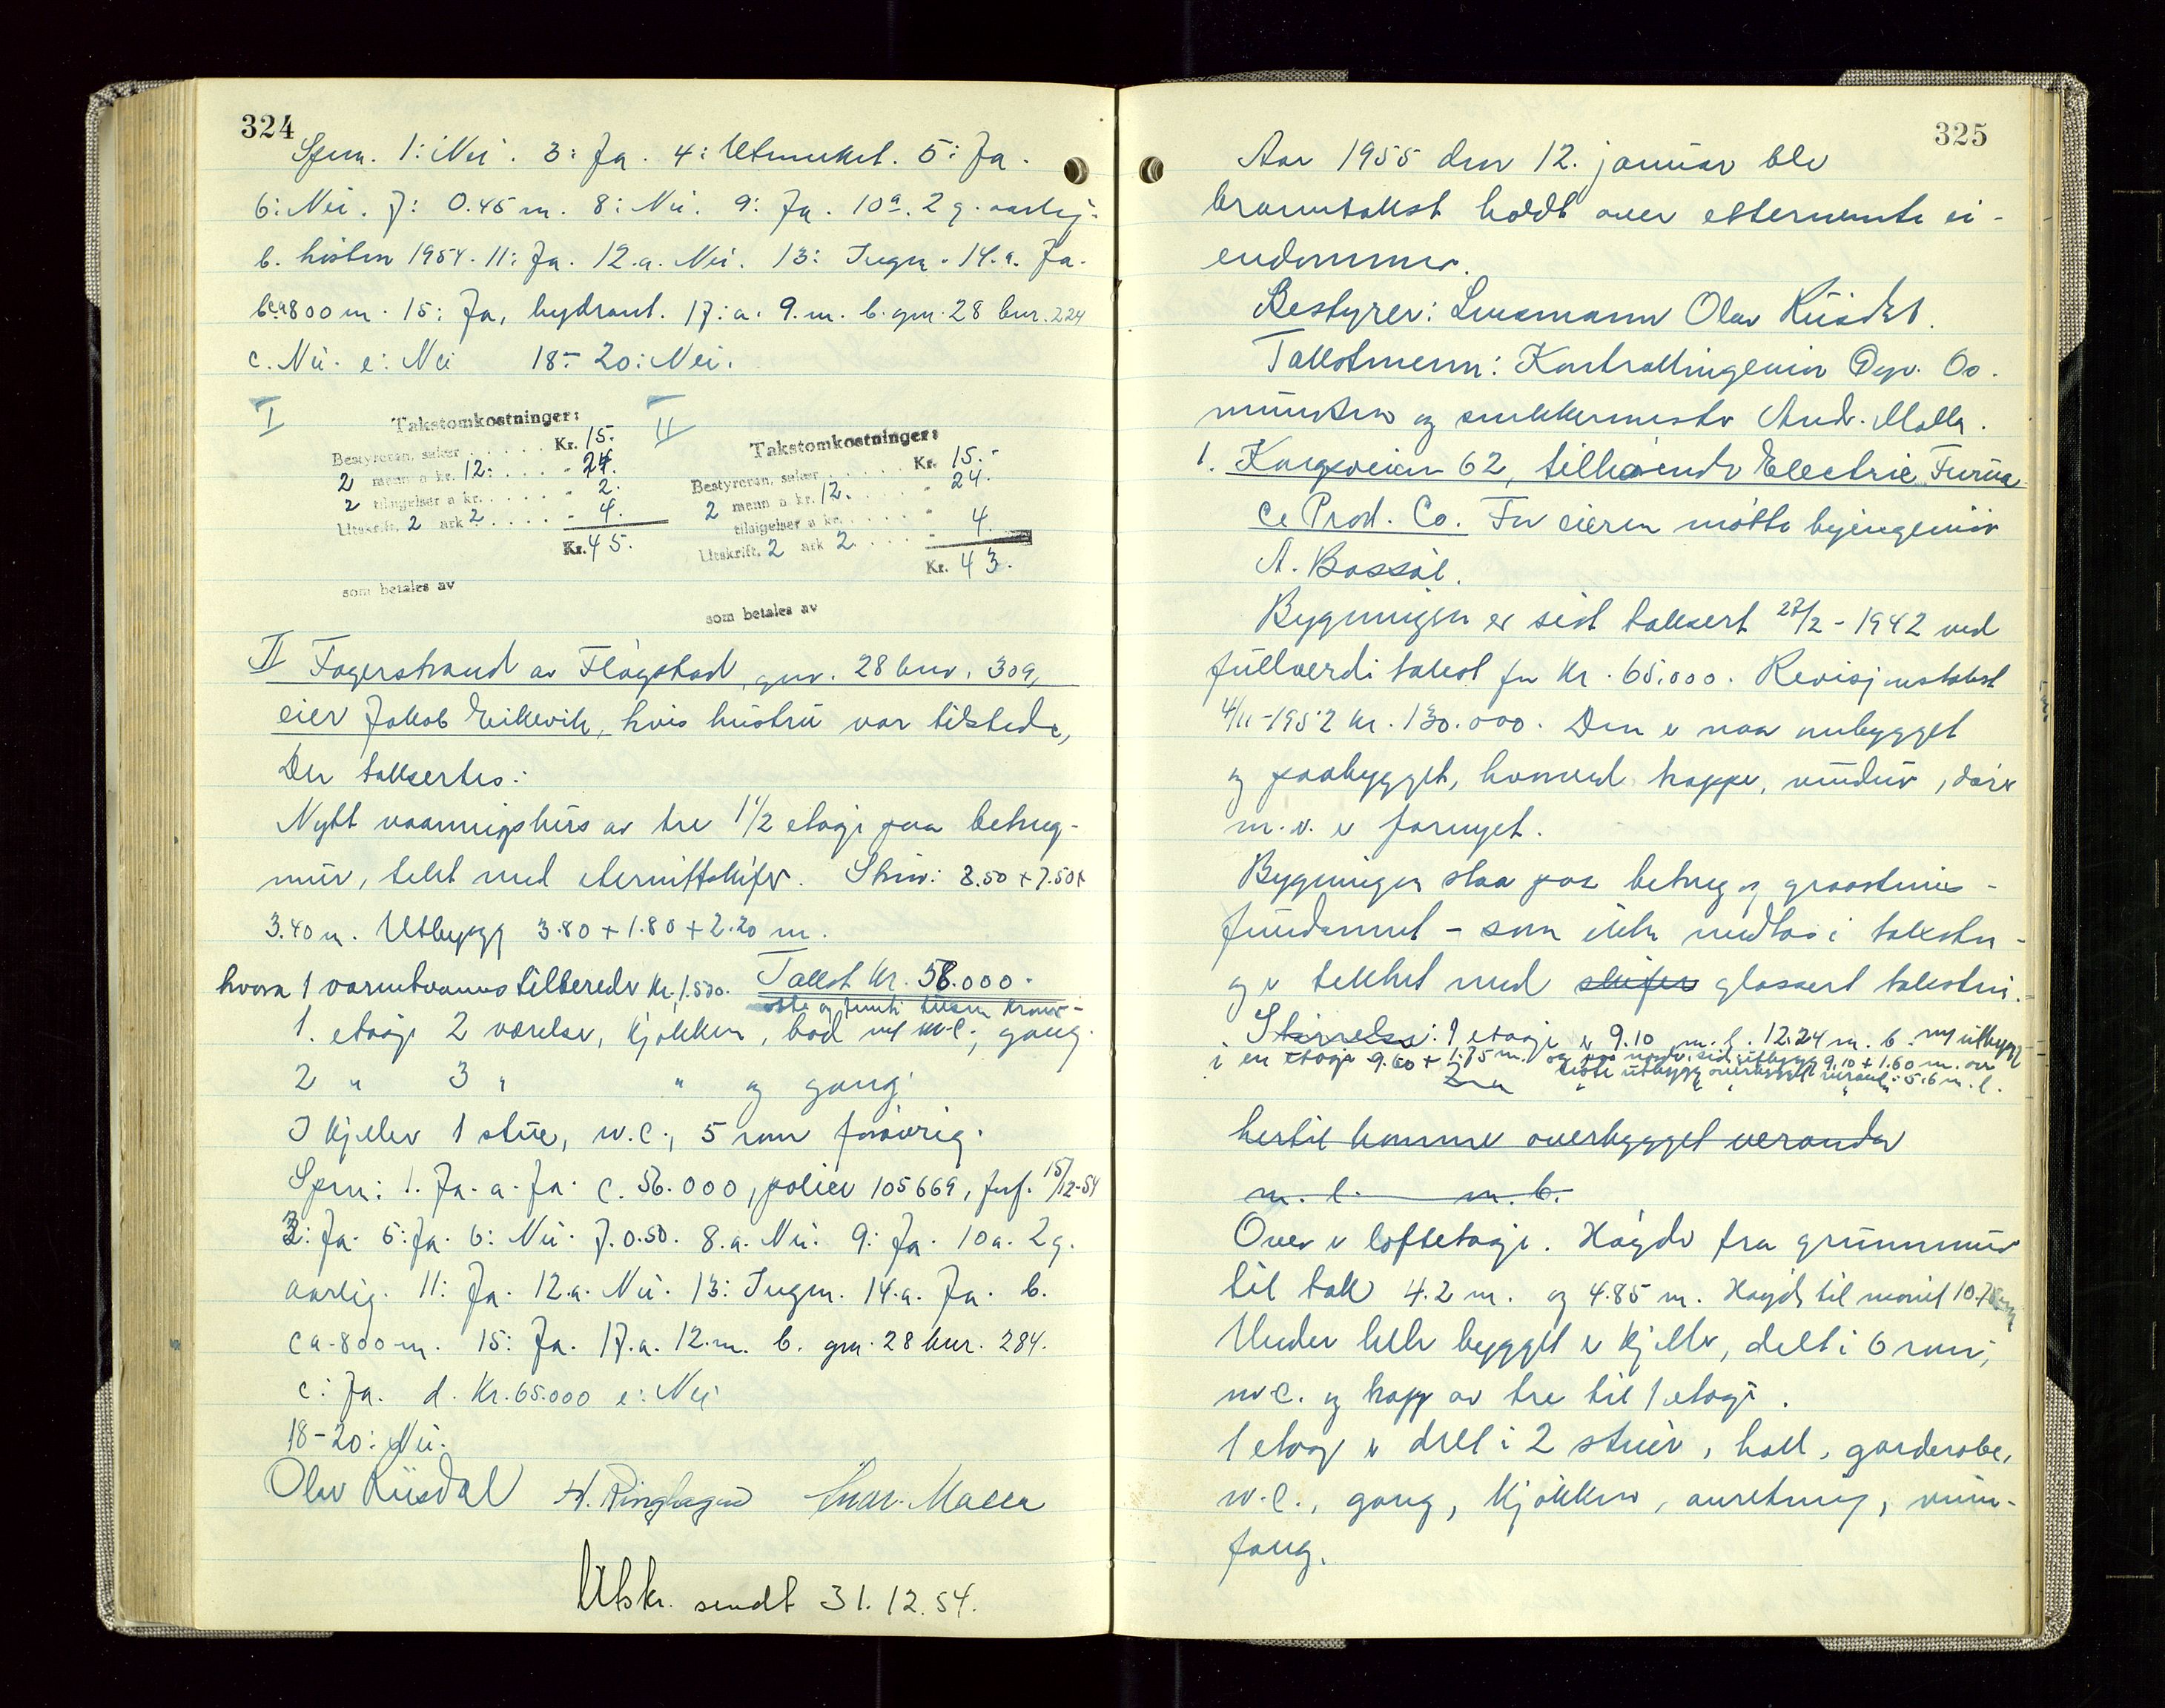 324
Spm. 1: Nei. 3: Ja. 4: Utmerket. 5: Ja.
6: Nei. 7: 0.45 m. 8: Nei. 9: Ja. 10a. 2 g. aarlig.
b. hösten 1954. 11: Ja. 12.a. Nei. 13: Ingen. 14.a. Ja.
b ca 800 m. 15: Ja, hydrant. 17: a. 9. m. b. gnr. 28 bnr. 224
c. Nei. e: Nei 18-20: Nei.
I
Takstomkostninger:
Bestyreren, salær . . . . . . Kr. 15.
2 menn a kr. 12. . . . . - 24.
2 tilsigelser a kr. . . . . . - 2.
Utskrift, 2 ark 2 . . . . - 4.
Kr. 45.
som betales av
II
Takstomkostninger:
Bestyreren, salær . . . . . . Kr. 15.-
2 menn a kr. 12. . . . . - 24.
tilsigelser a kr. . . . . . -
Utskrift, 2 ark 2. . . . . - 4.
Kr. 43.
som betales av
II Fagerstrand av Flågstad, gnr. 28 bnr. 309,
eier Jakob Eikevik, hvis hustru var tilstede,
Der taksertes:
Nytt vaaningshus av tre 1 1/2 etage paa betong-
mur, tekt med eternittskifer. Störr: 8.50 + 7.50 +
3.40 m. Utbygg 3.80 + 1.80 + 2.20 m.
hvorav 1 varmtvannstilbereder kr. 1.500. Takst Kr. 58.000.-
otte og femti tusen kroner-
1. etage 2 værelser, kjøkken, bad m/ w.c., gang.
2 " 3 " " og gang
I kjeller 1 stue, w.c., 5 rom forövrig.
Spm: 1. Ja. a. Ja. c. 56.000, police 105669, 15/12-54
3: Ja. 5: Ja. 6: Nei. 7. 0.50. 8.a. Nei. 9: Ja. 10a. 2 g.
aarlig. 11: Ja. 12.a. Nei. 13: Ingen. 14.a. Ja. b.
ca. 800 m. 15: Ja. 17.a. 12.m. b. gnr. 28 bnr. 284.
c: Ja. d. Kr. 65.000 e: Nei
18-20: Nei.
Olav Riisdal H. Ringhagen Andr. Malla
Utskr. sendt 31.12.54.
325
Aar 1955 den 12. januar ble
branntakst holdt over etternemnte ei-
endommer.
Bestyrer: Lensmann Olav Riisdal.
Takstmenn: Kontrollingeniör Os-
munden og snekkermester Andr. Malla.
1. Kongsveien 62, tilhörende Electric Furna
ce Prod. Co. For eieren mötte byingeniör
A. Bassöl.
Bygningen er sist taksert 27/2 - 1942 ved
fullverdi takst for kr. 65.000. Revisjonstakst
4/11-1952 kr. 130.000. Den er naa ombygget
og paabygget, hvorved trapper, vinduer, dörer
m.v. er fornyet.
Bygningen staar paa betong og graasteins-
fundament - som ikke medtas i taksten -
og er tekket med skifer glassert taksten.
Störrelse: 1 etage er 9.10 m. l. 12.24 m. b. m/ utbygg
i en etage 9.60 + 1.75 m. og paa nordv. side utbygg 9.10 + 1.60 m. over
siste utbygg overbygget veranda: 5.6 m. l.
hertil kommer overbygget veranda
m. l. m. b.
Over er loftsetage. Höyde fra grunnmur
til tak 4.2 m. og 4.85 m. Höyde til mönet
Under hele bygget er kjeller, delt i 6 rom,
w.c. og trapp av tre til 1 etage.
1 etage er delt i 2 stuer, hall, garderobe,
w.c., gang, kjökken, anretning, vinn-
fang.